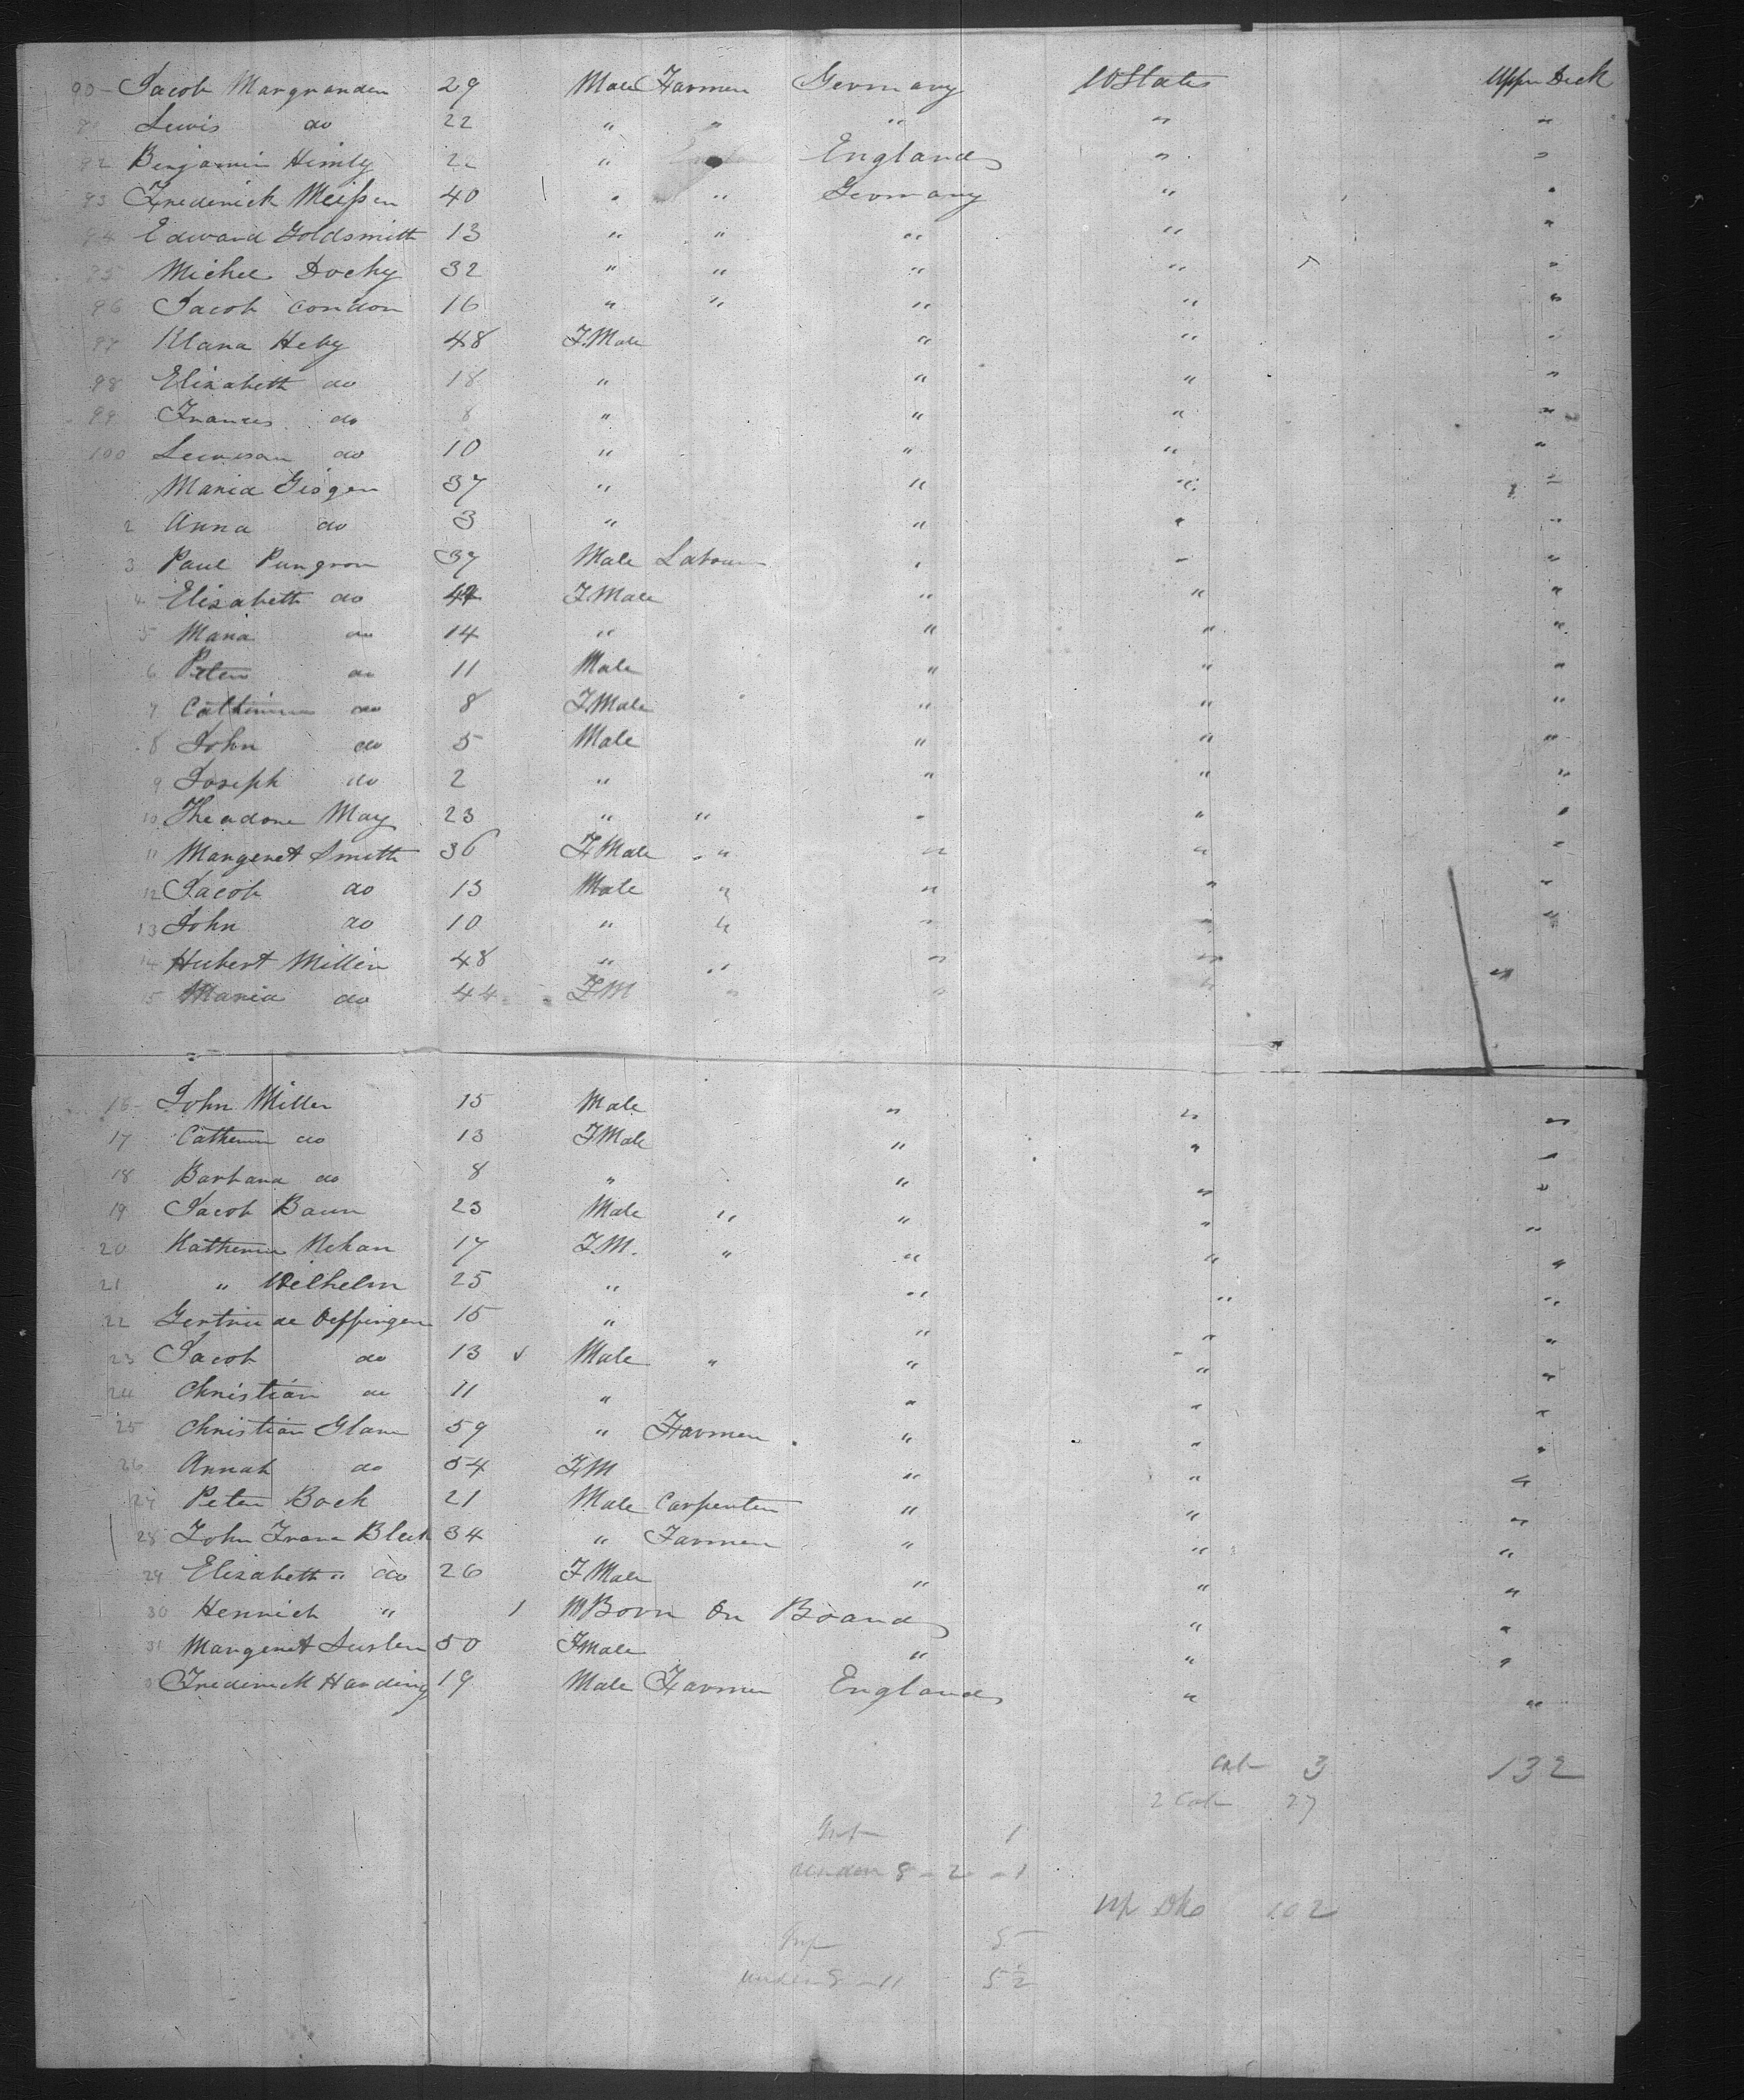 90 Jacob Margrander 29 Male Farmer Germany UStates Upper Deck
91 Lewis do 22 " " " " "
92 Benjamin Himly 22 " " England " "
93 Frederick Meissen 40 " " Germany " "
94 Edward Goldsmith 13 " " " " "
95 Michel Dochy 32 " " " " "
96 Jacob Condon 16 " " " " "
97 Klara Heby 48 F.Male " " "
98 Elizabeth do 18 " " " "
99 Frances do 8 " " " "
100 do 10 " " " "
Maria Gisgen 37 " " " "
2 Anna do 3 " " " "
3 Paul Pungron 37 Male Labour " " "
4 Elisabeth do F Male " " "
5 Maria do 14 " " " "
6 Peter do 11 Male " " "
7 Catherine do 8 F.Male " " "
8 John do 5 Male " " "
9 Joseph do 2 " " " "
10 Theadore May 23 " " " " "
11 Margeret Smith 36 F Male " " " "
12 Jacob do 13 Male " " " "
13 John do 10 " " " " "
14 Hubert Miller 48 " " " " "
15 Maria do 44 F M " " "
16 John Miller 15 Male " " "
17 Catherine do 13 F Male " " "
18 Barbara do 8 " " " "
19 Jacob Baun 23 Male " " " "
20 Katherine Nehan 17 F.M. " " " "
21 " Wilhelm 25 " " " "
22 Gertrude Oeffingen 15 " " " "
23 Jacob do 13 Male " " " "
24 Christian do 11 " " " "
25 Christian Glam 59 " Farmer " " "
26 Annah do 54 F M " " "
27 Peter Bock 21 Male Carpenter " " "
28 John Frans Bleck 34 " Farmer " " "
29 Elizabeth " do 26 F Male " " "
30 Henrich " 1 M Born On Board " "
31 Margeret 50 F male " " "
Frederick Harding 19 Male Farmer England " "
Cab 3 132
2 Cab 27
Inf 1
under 8 - 2 - 1
Up Dk 102
Inf 5
under 8 - 11 5 1/2